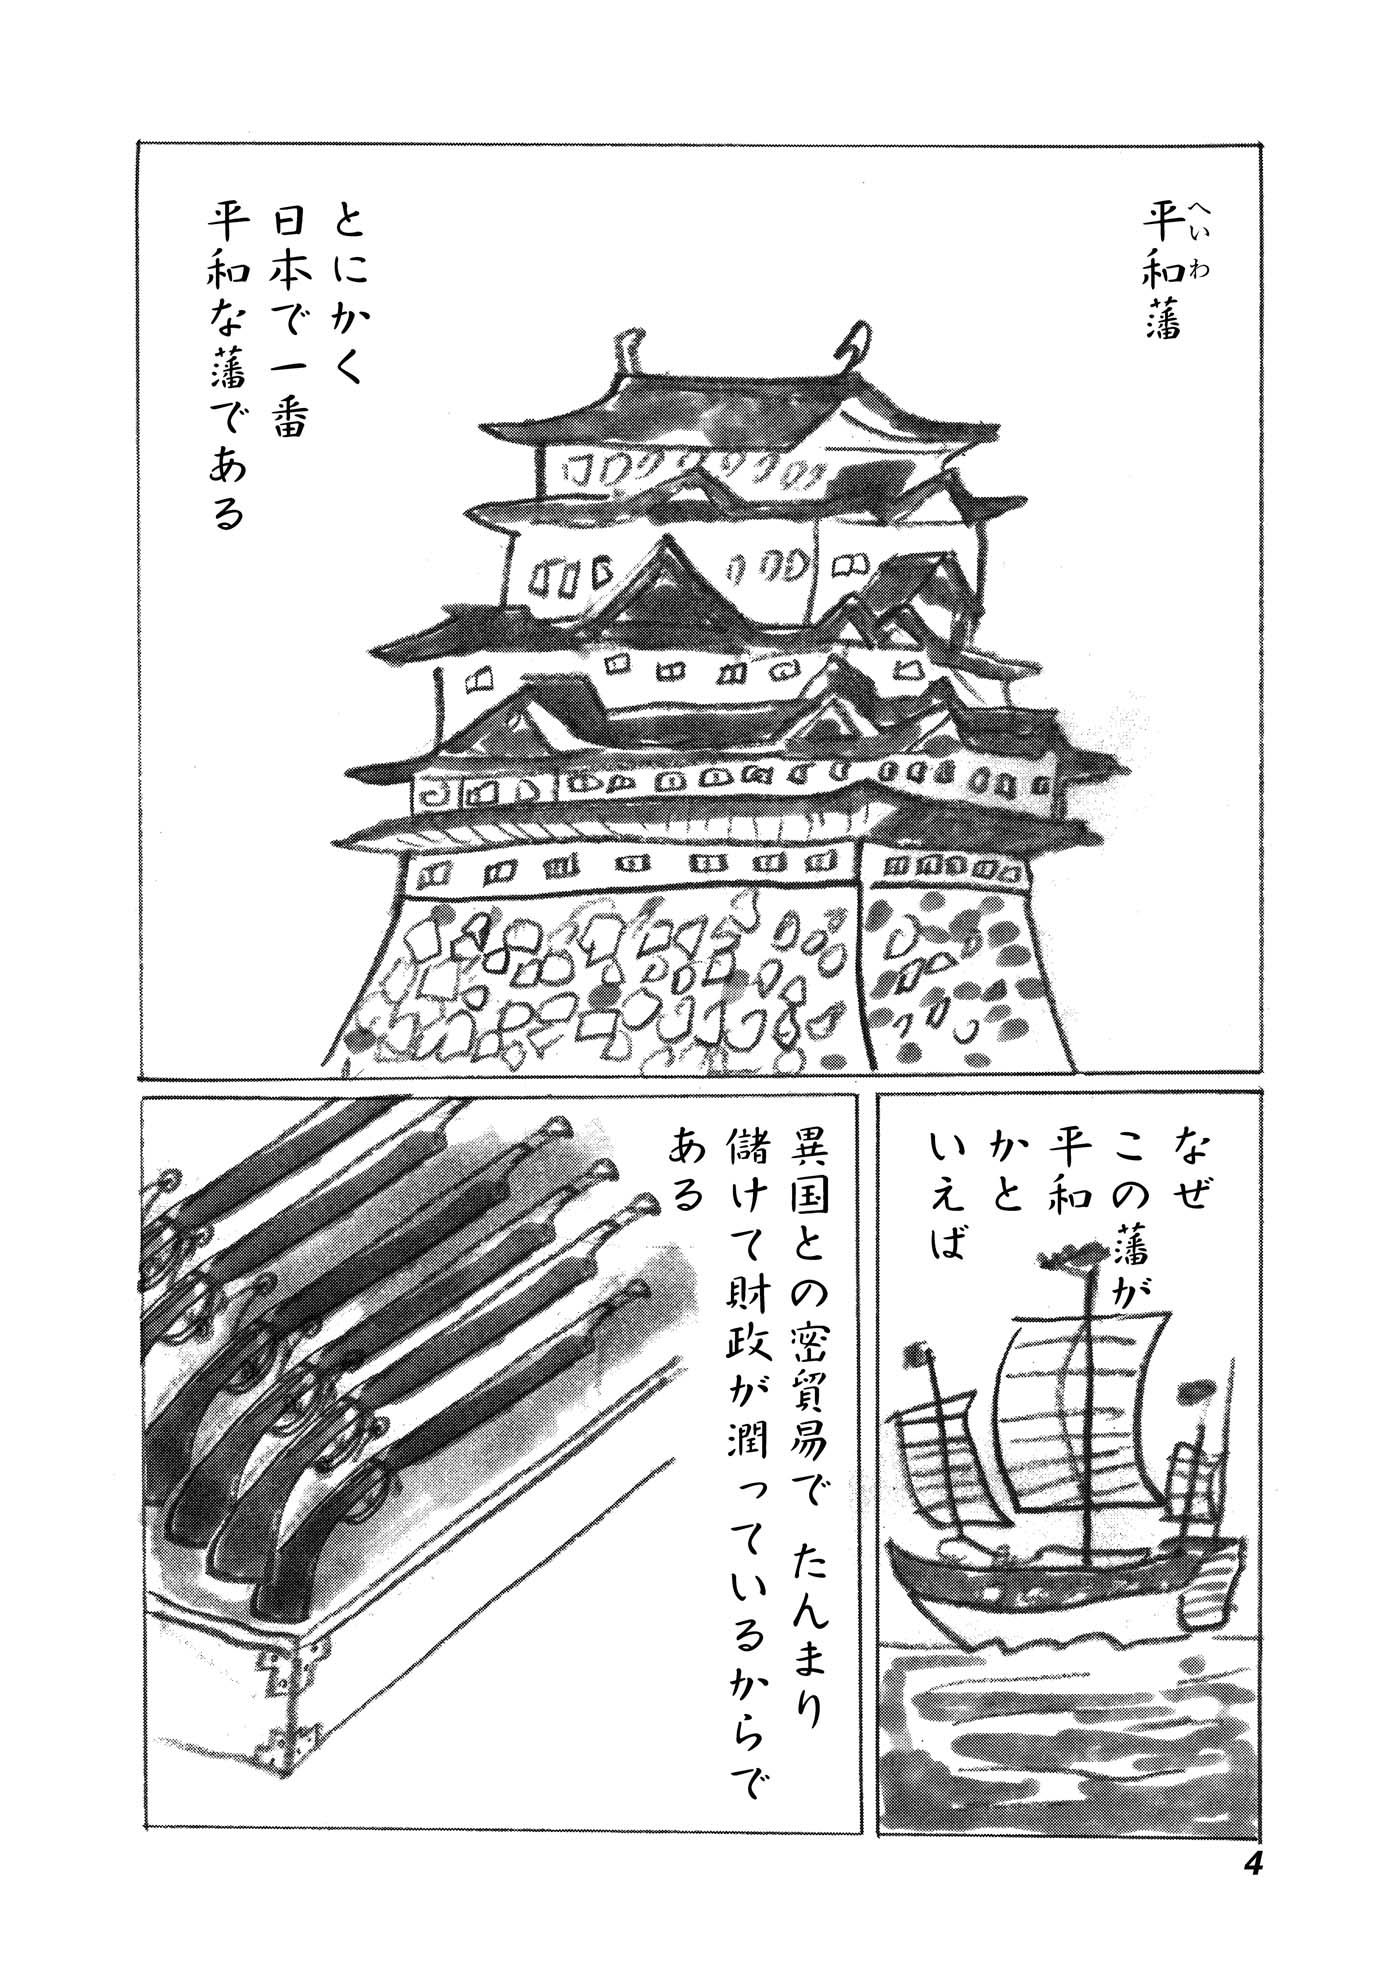 平和藩
へいわ
とにかく
日本で一番
平和な藩である
なぜ
この藩が
平和
かと
いえば
異国との密貿易で たんまり
儲けて財政が潤っているからで
ある
4